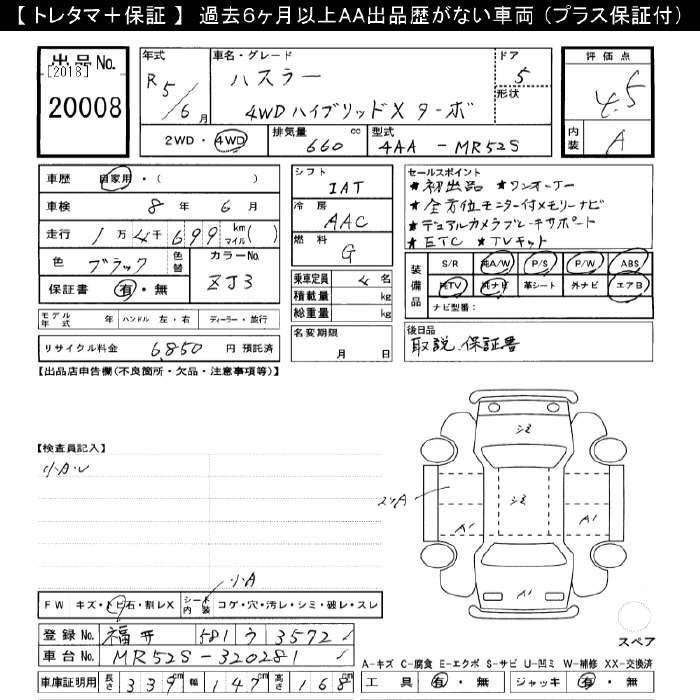 【 トレタマ＋保証 】 過去6ヶ月以上AA出品歴がない車両（プラス保証付）
出品No. [2018] 20008
年式 R5/6月
車名・グレード ハスラー 4WD ハイブリッドX ターボ
ドア 5
形状
評価点 4.5
内装 A
2WD・4WD 排気量 660 cc 型式 4AA - MR52S
車歴 自家用・( )
車検 8年 6月
走行 1万4千699 km マイル( )
色 ブラック 色替 カラーNo. ZJ3
保証書 有・無
シフト IAT
冷房 AAC
燃料 G
乗車定員 4名
積載量 kg
総重量 kg
セールスポイント
★初出品 ★ワンオーナー
★全方位モニター付メモリーナビ
★デュアルカメラブレーキサポート
★ETC ★TVキット
装備品 S/R 純A/W P/S P/W ABS
純TV 純ナビ 革シート 外ナビ エアB
ナビ型番:
モデル年式 年 ハンドル 左・右 ディーラー・並行
名変期限 月 日
後日品 取説、保証書
リサイクル料金 6,850 円 預託済
【出品店申告欄(不良箇所・欠品・注意事項等)】
【検査員記入】
小A・U
シミ
シミ
A1
A1
A1
小A
FW キズ・トビ石・割レX シート内装 コゲ・穴・汚レ・シミ・破レ・スレ
登録No. 福井 581 う 3572
車台No. MR52S-320281
車庫証明用 長さ 339cm 幅 147cm 高さ 168cm
スペア
A-キズ C-腐食 E-エクボ S-サビ U-凹ミ W-補修 XX-交換済
工具 有・無 ジャッキ 有・無